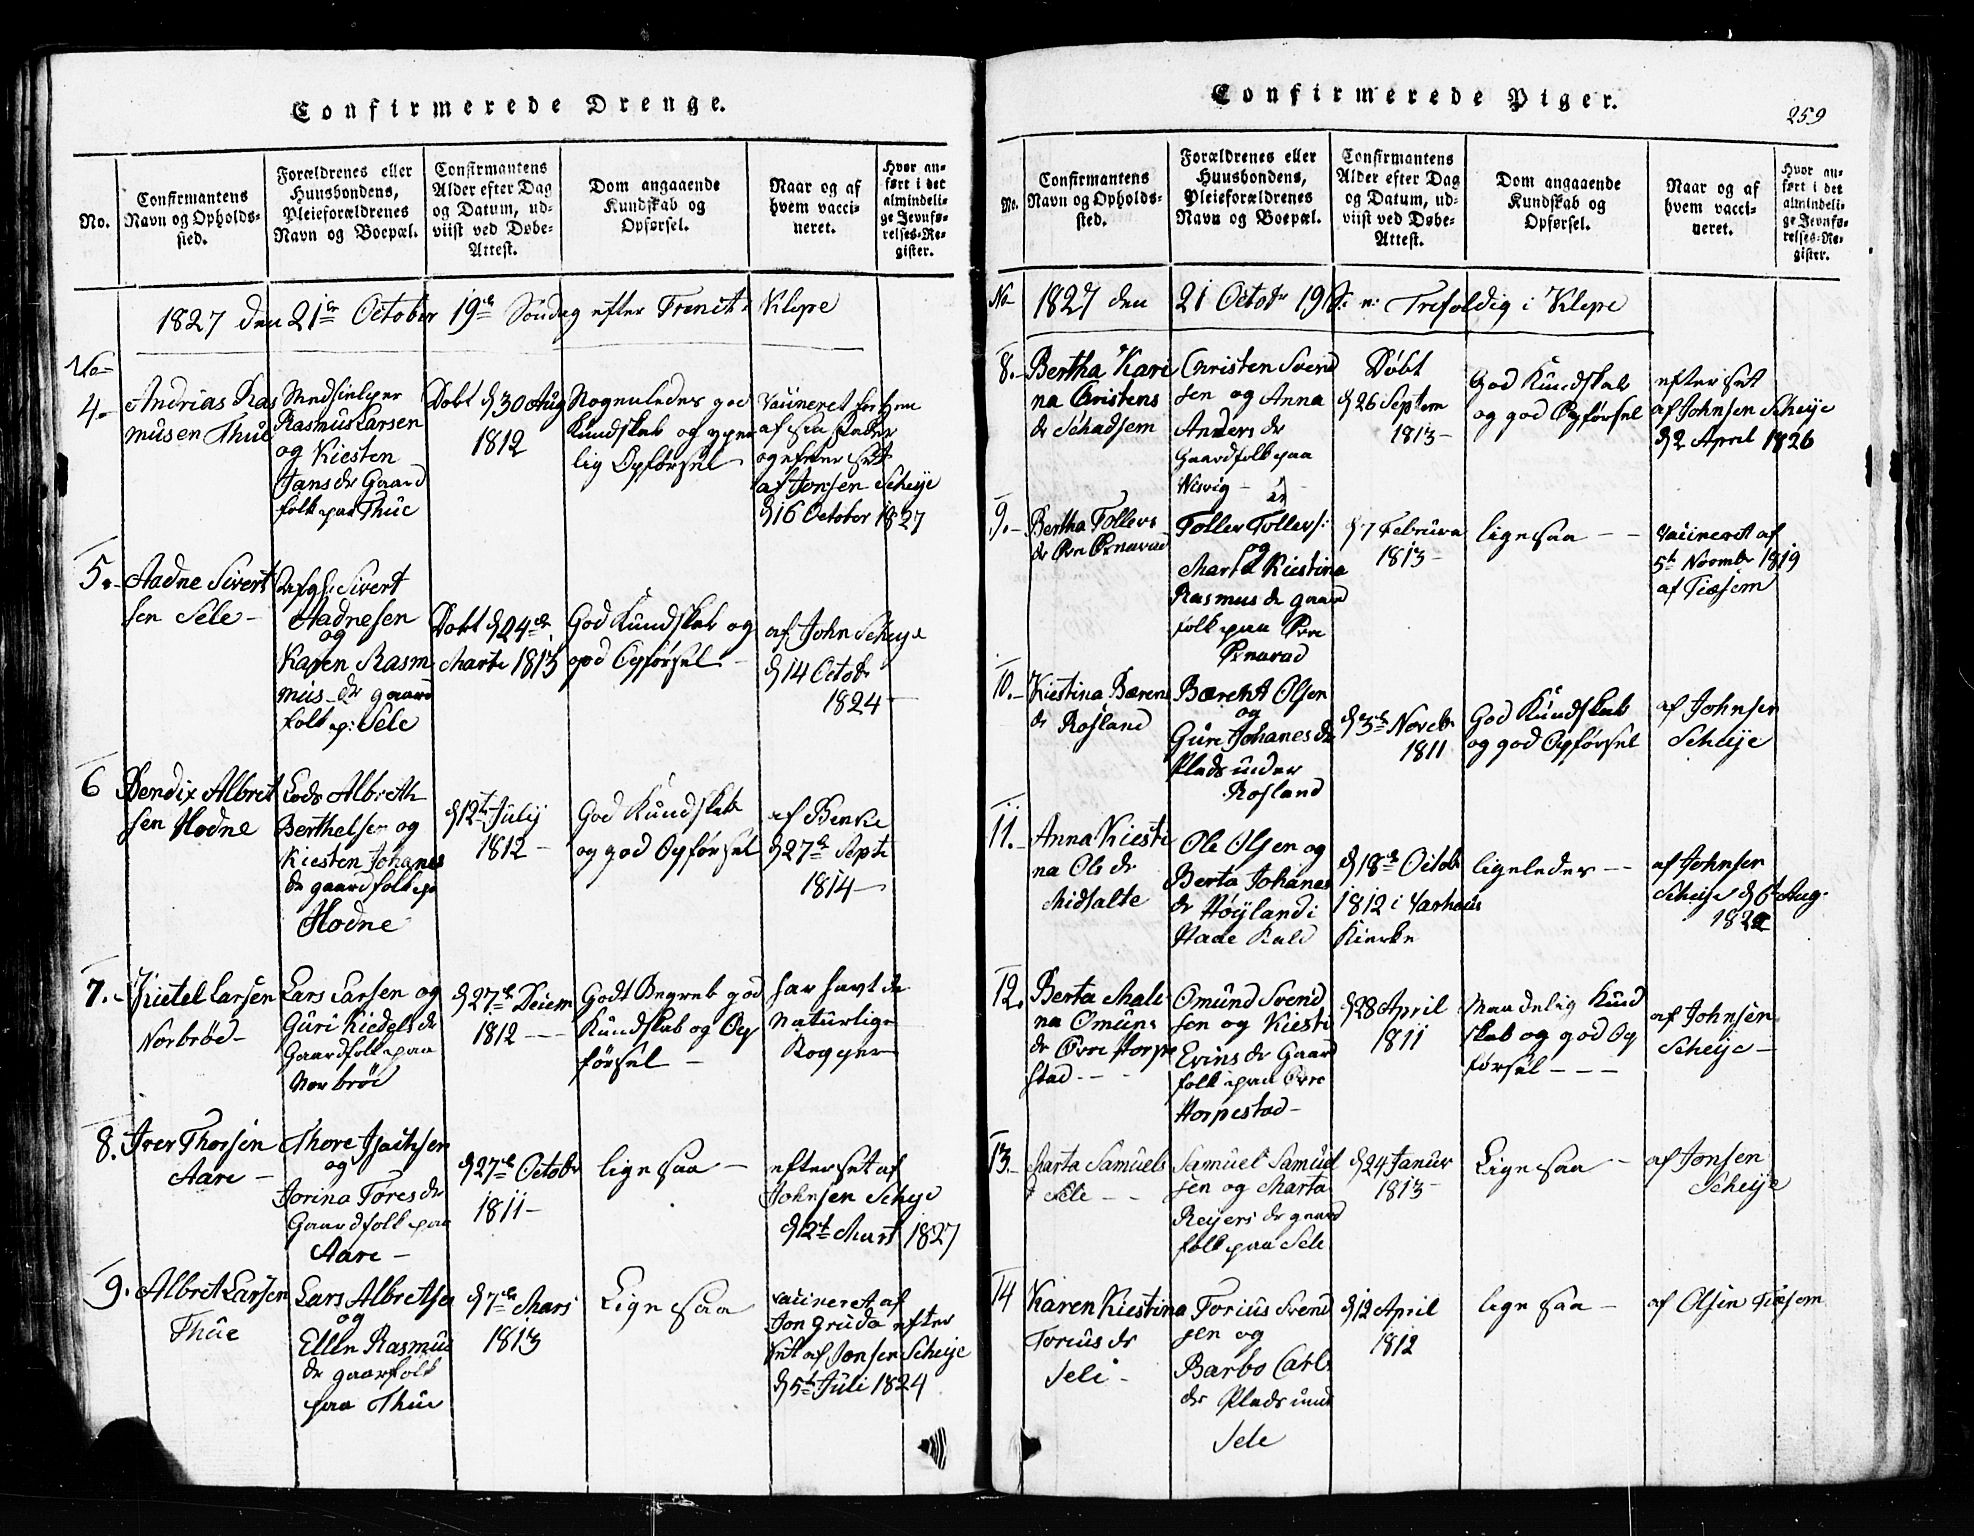 Confirmerede Drenge.
No.
Confirmantens
Navn og Opholds-
sted.
Forældrenes eller
Huusbondens,
Pleieforældrenes
Navn og Boepæl.
Confirmantens
Alder efter Dag
og Datum, ud-
viist ved Døbe-
Attest.
Dom angaaende
Kundskab og
Opførsel.
Naar og af
hvem vacci-
neret.
Hvor an-
ført i det
almindeli-
ge Jevnfø-
relses-Re-
gister.
1827 den 21de October 19de Søndag efter Trenit: Klepe
No
4. Andrias Ras
musen Thue
Medhielper
Rasmus Larsen
og Kiesten
Jans dr Gaard
folk paa Thue
Døbt d 30 Aug
1812
Nogenledes god
Kundskab og
lig Opførsel
Vacineret
af
og efter set
af Jonsen Scheije
d 16 October 1827
5. Aadne Sivert
sen Sele
Sivert
Aadnesen
og
Karen Rasm
mus dr gaard
folk p: Sele
Døbt d 24de
Marti 1813
God Kundskab og
god Opførsel
af John Scheije
d 14 Octobr
1824
6 Bendix Albret
sen Hodne
Lods Albreth
Berthelsen og
Kiesten Johanes
dr gaardfolk pa
Hodne
d 12t Julij
1812
God Kundskab
og god Opførsel
af Benke
d 27de Septe
1814
7. Kietel Larsen
Norbrød
Lars Larsen og
Guri Kiedels dr
Gaardfolk paa
Norbrød
d 27de Decem
1812
Godt Begreb god
Kundskab og Op
førsel
har havt de
Naturlige
Kopper
8. Iver Thorsen
Aare
Thore Isachsen
og
Jorina Tores dr
Gaardfolk paa
Aare
d 27de Octobr
1811
lige saa
efter set af
Johnsen Scheije
d 2t Mart 1827
9. Albret Larsen
Thue
Lars Albretsen
og
Ellen Rasmus
dr gaarfolk
paa Thue
d 7de Mars
1813
Lige saa
vacineret af
Jon Gruda efter
set af Jonsen Scheije
d 5t Juli 1824
Confirmerede Piger.
259
No.
Confirmantens
Navn og Opholds-
sted.
Forældrenes eller
Huusbondens,
Pleieforældrenes
Navn og Boepæl.
Confirmantens
Alder efter Dag
og Datum, ud-
viist ved Døbe-
Attest.
Dom angaaende
Kundskab og
Opførsel.
Naar og af
hvem vacci-
neret.
Hvor an-
ført i det
almindeli-
ge Jevnfø-
relses-Re-
gister.
No 1827 den 21 Octobr 19 S: e: Trefoldig i Klepe
8. Bertha Kari
na Christens
dr Schadsem
Christen Svend
sen og Anna
Anders dr
Gaardfolk paa
Døbt
d 26 Septem
1813
God Kundskab
og god Opførsel
efter set
af Johnsen Scheije
d 2 April 1826
9. Bertha Tollers
dr Øvre Ørnarad
Toller Tollers:
og
Marta Kiestina
Rasmus dr gaard
folk paa Øvre
Ørnarad
d 7 Februra
1813
lige saa
vacineret af
5t Novmbr 1819
af Tiøsem
10. Kiestina Bærens
dr Rosland
Bærent Olsen
og
Guri Johanes dr
Plads under
Rosland
d 3de Novebr
1811
God Kundskab
og god Opførsel
af Johnsen
Scheije
11. Anna Kiesti
na Ols dr
Midtalte
Ole Olsen og
Berta Johanes
dr Høyland i
Haae Kald
d 18de Octobr
1812 i Varhaus
Kierke
ligeledes
af Johnsen
Scheije d 6t Aug.
12. Berta Mali
na Omuns
dr Øvre Horpe
stad
Omund Svend
sen og Kiesti
Evins dr Gaard
folk paa Øvre
Horpestad
d 28 April
1811
Maadelig Kund
skab og god Op
førsel
af Johnsen
Scheije
13. Marta Samuels
Sele
Samuel Samuel
sen og Marta
Reijers dr gaard
folk paa Sele
d 24 Janur
1813
Lige saa
af Jonsen
Scheije
14 Karen Kiestina
Torius dr
Seli
Torius Svend
sen og
Barbo Carls
dr Plads und
Sele
d 12 April
1812
lige saa
af Olsen Tiøsem